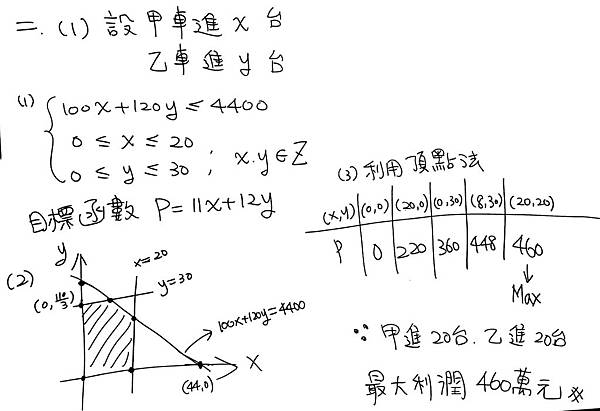 二.(1) 設甲車進 x 台
乙車進 y 台
(1) { 100x+120y ≤ 4400
0 ≤ x ≤ 20
0 ≤ y ≤ 30 ; x.y∈Z
目標函數 P=11x+12y
(2)
y
x=20
y=30
(0,110/3)
100x+120y=4400
x
(44,0)
(3) 利用頂點法
(x,y) (0,0) (20,0) (0,30) (8,30) (20,20)
P 0 220 360 448 460
↓
Max
∵ 甲進20台.乙進20台
最大利潤 460萬元 ※